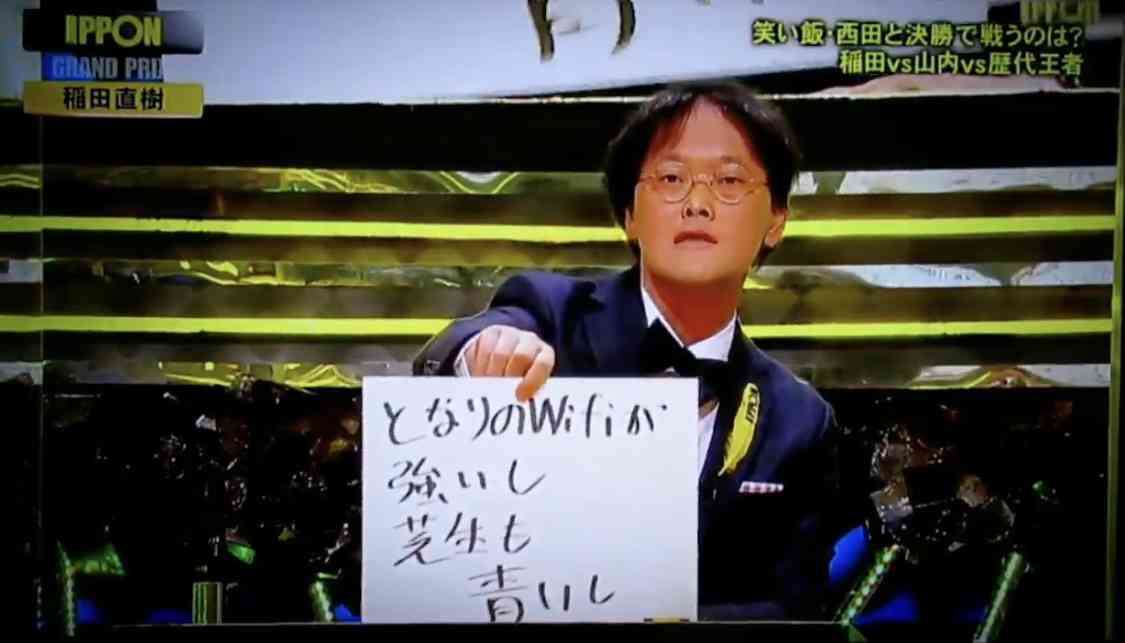 IPPON
GRAND PRIX
稲田直樹
笑い飯・西田と決勝で戦うのは?
稲田vs山内vs歴代王者
となりのWifiが
強いし
芝生も
青いし